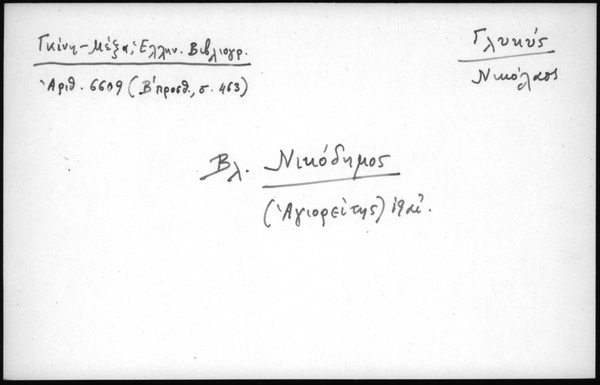 Γκίνη-Μέξα, Ἑλλην. Βιβλιογρ.
Ἀριθ. 6609 (Β' προσθ., σ. 463)
Γλυκύς
Νικόλαος
Βλ. Νικόδημος
(Ἁγιορείτης)